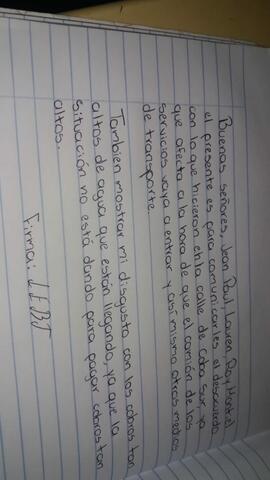 Buenas señores, Jean Paul, Lauren, Roy Montiel
el presente es para comunicarles el desacuerdo
con lo que hicieron en la calle de Coba sur, ya
que afecta a la hora de que el camión de los
servicios vaya a entrar y así mismo otros medios
de transporte.
Tambien mostrar mi disgusto con los cobros tan
altos de agua que están llegando, ya que la
situación no está dando para pagar cobros tan
altos.
Firma: